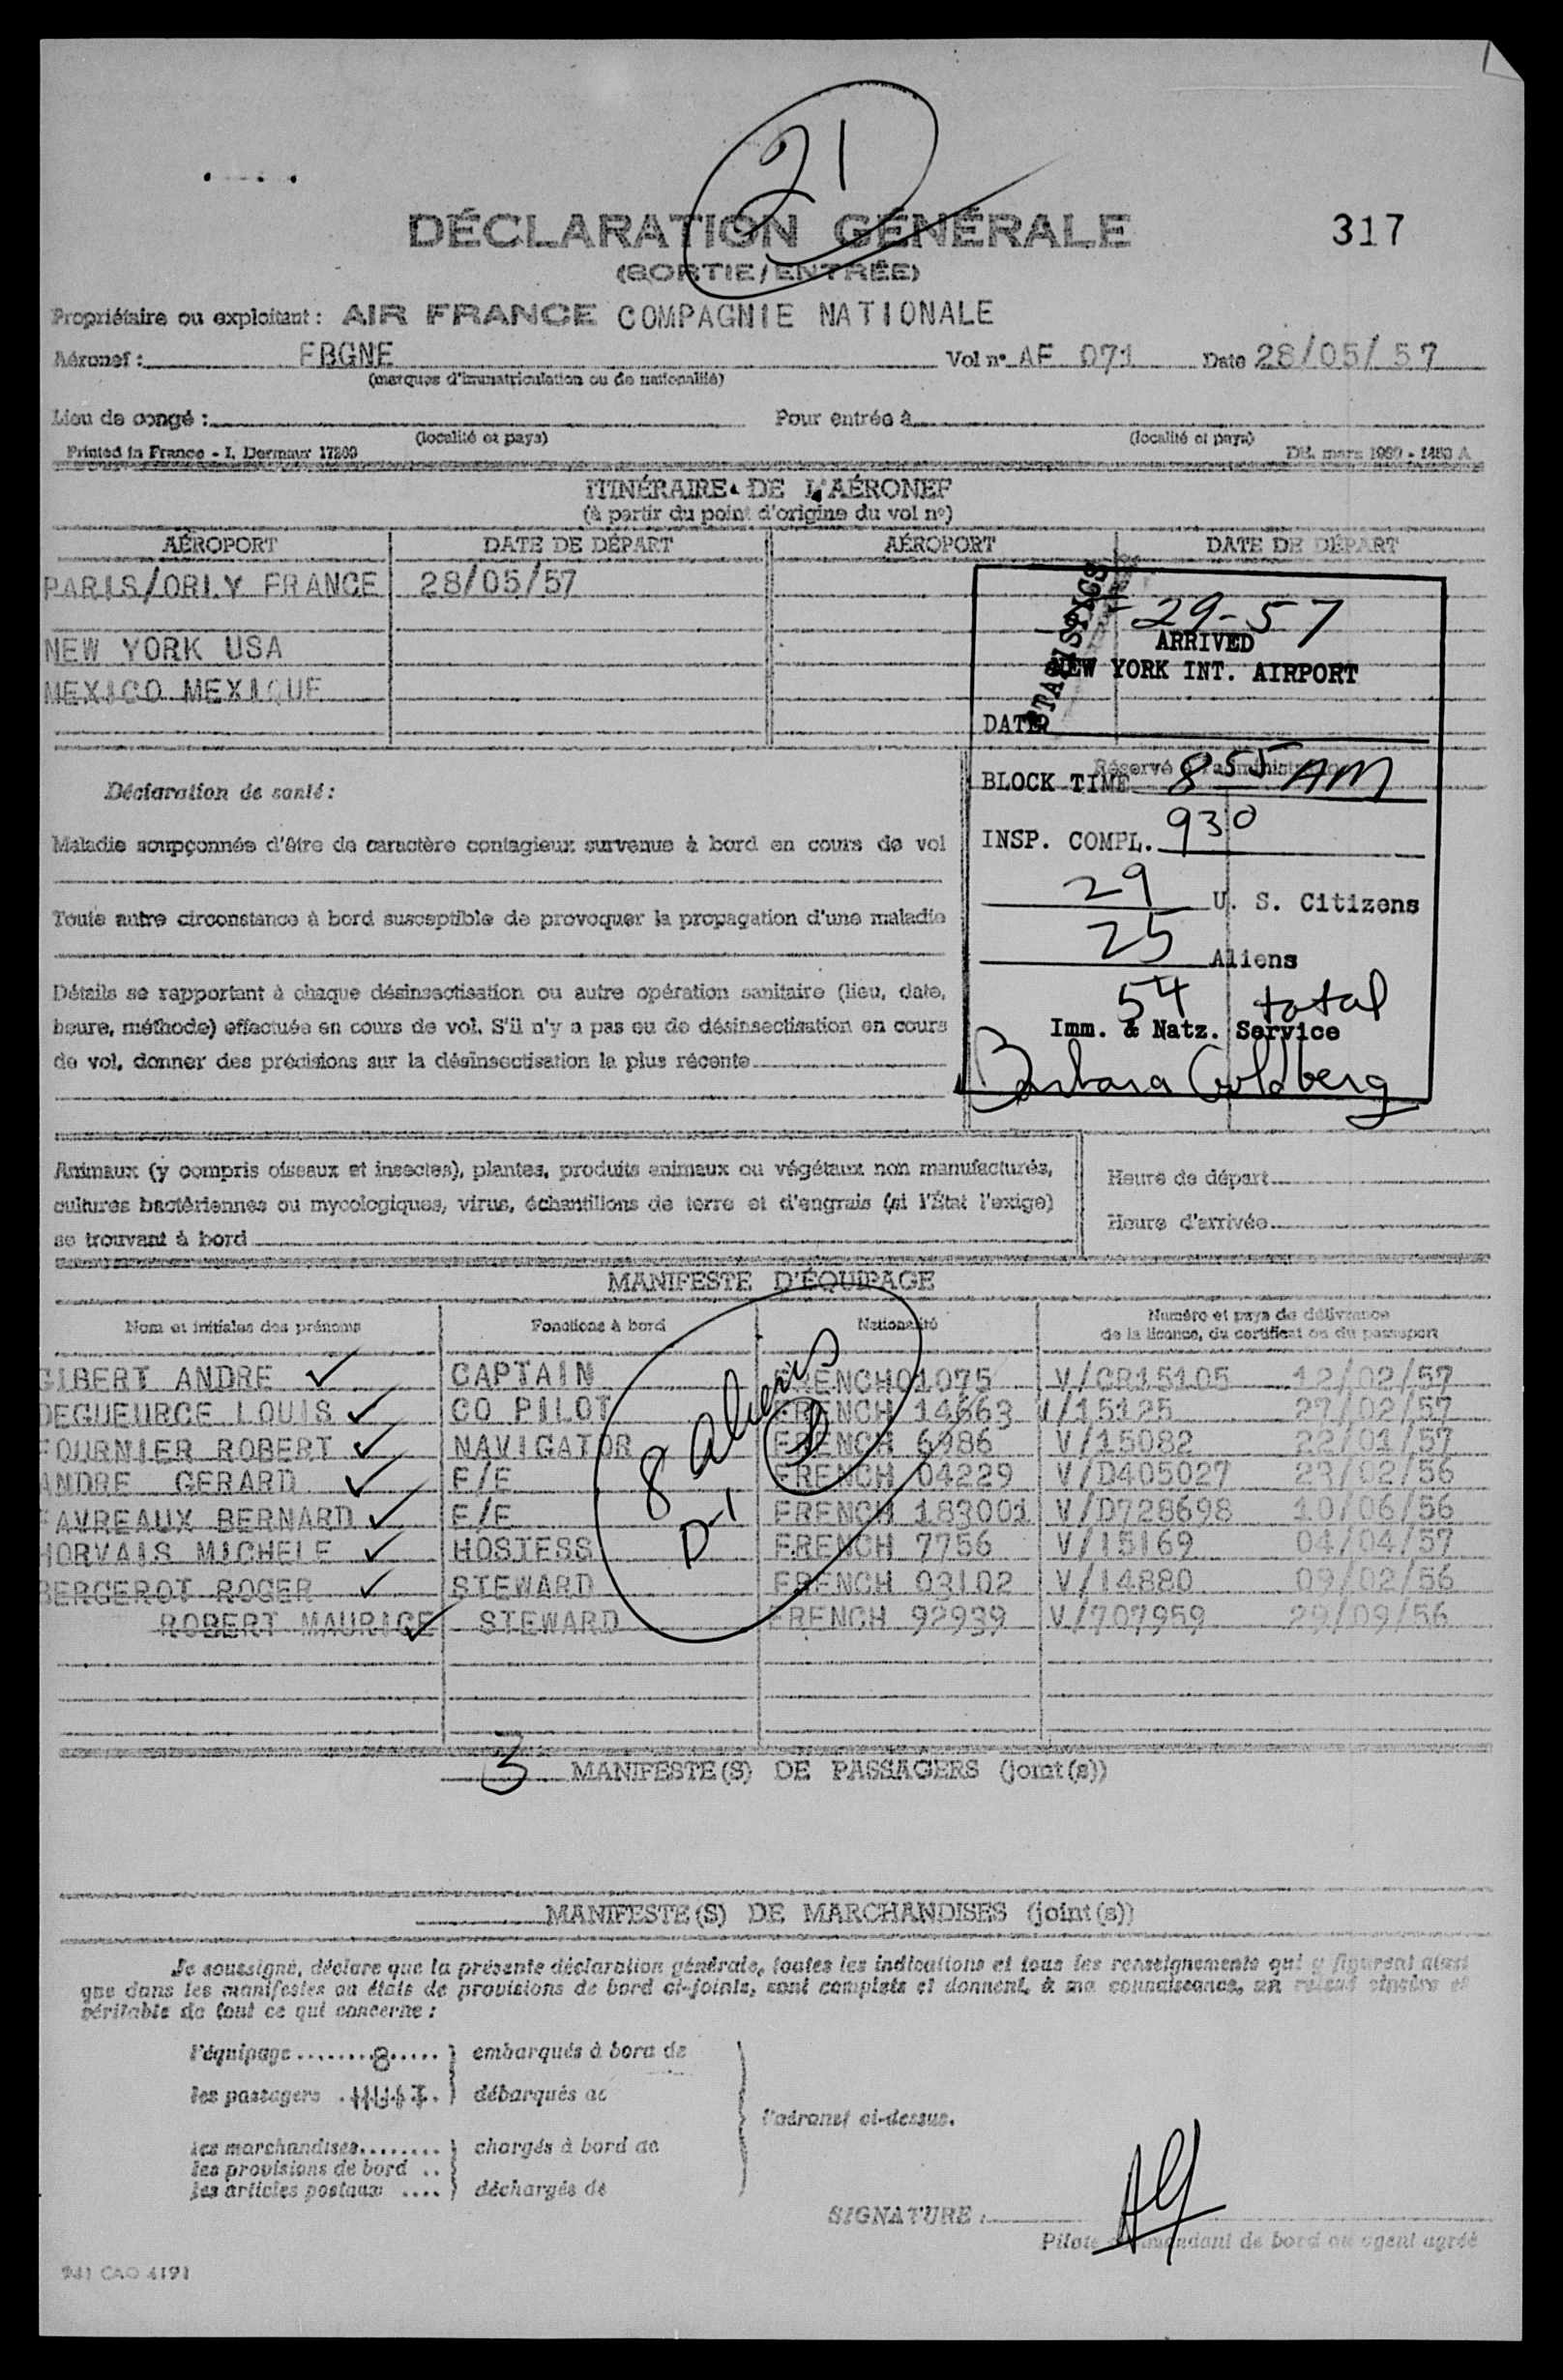 21
DÉCLARATION GÉNÉRALE
317
(SORTIE/ENTRÉE)
Propriétaire ou exploitant : AIR FRANCE COMPAGNIE NATIONALE
Aéronef : FBGNE Vol nº AF 071 Date 28/05/57
(marques d'immatriculation ou de nationalité)
Lieu de congé : Pour entrée à
(localité et pays) (localité et pays)
Printed in France - I. Dermaux
ITINÉRAIRE DE L'AÉRONEF
(à partir du point d'origine du vol nº)
AÉROPORT DATE DE DÉPART AÉROPORT DATE DE DÉPART
PARIS/ORLY FRANCE 28/05/57
NEW YORK USA
MEXICO MEXIQUE
29-57
ARRIVED
NEW YORK INT. AIRPORT
DATE
BLOCK TIME 855 AM
INSP. COMPL. 930
29 U. S. Citizens
25 Aliens
54 total
Imm. & Natz. Service
Barbara Goldberg
Déclaration de santé :
Maladie soupçonnée d'être de caractère contagieux survenue à bord en cours de vol
Toute autre circonstance à bord susceptible de provoquer la propagation d'une maladie
Détails se rapportant à chaque désinsectisation ou autre opération sanitaire (lieu, date,
heure, méthode) effectuée en cours de vol. S'il n'y a pas eu de désinsectisation en cours
de vol, donner des précisions sur la désinsectisation la plus récente
Animaux (y compris oiseaux et insectes), plantes, produits animaux ou végétaux non manufacturés,
cultures bactériennes ou mycologiques, virus, échantillons de terre et d'engrais (si l'État l'exige)
se trouvant à bord
Heure de départ
Heure d'arrivée
MANIFESTE D'ÉQUIPAGE
Nom et initiales des prénoms Fonctions à bord Nationalité Numéro et pays de délivrance
de la licence, du certificat ou du passeport
GIBERT ANDRE ✓ CAPTAIN FRENCH 01075 V/CR15105 12/02/57
DEGUEURCE LOUIS ✓ CO PILOT FRENCH 14663 V/15125 27/02/57
FOURNIER ROBERT ✓ NAVIGATOR FRENCH 6986 V/15082 22/01/57
ANDRE GERARD ✓ E/E FRENCH 04229 V/D405027 23/02/56
FAVREAUX BERNARD ✓ E/E FRENCH 183001 V/D728698 10/06/56
HORVAIS MICHELE ✓ HOSTESS FRENCH 7756 V/15169 04/04/57
BERGEROT ROGER ✓ STEWARD FRENCH 03102 V/14880 09/02/56
ROBERT MAURICE ✓ STEWARD FRENCH 92939 V/707959 29/09/56
8 aliens
D-1
3 MANIFESTE(S) DE PASSAGERS (joint(s))
MANIFESTE(S) DE MARCHANDISES (joint(s))
Je soussigné, déclare que la présente déclaration générale, toutes les indications et tous les renseignements qui y figurent ainsi
que dans les manifestes ou états de provisions de bord ci-joints, sont complets et donnent, à ma connaissance, un relevé sincère et
véritable de tout ce qui concerne :
l'équipage ........8..... embarqués à bord de
les passagers débarqués de
l'aéronef ci-dessus.
les marchandises........ chargés à bord de
les provisions de bord ..
les articles postaux .... déchargés de
SIGNATURE :
Pilote commandant de bord ou agent agréé
941 CAO 4191